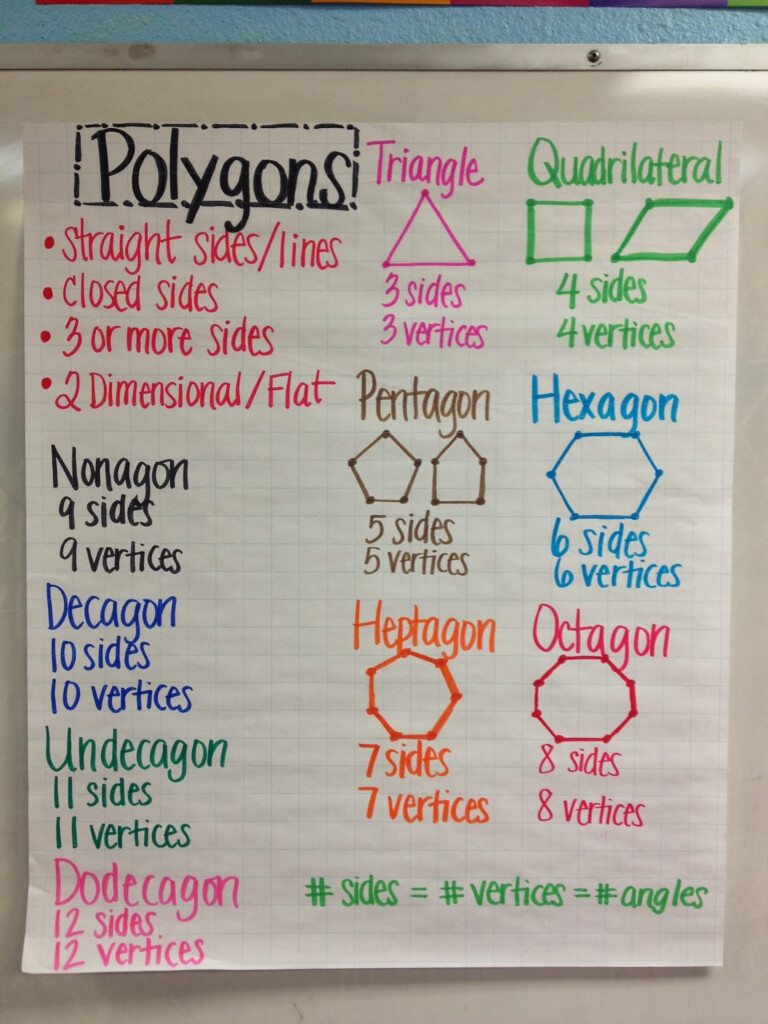 Polygons
• Straight sides/lines
• Closed sides
• 3 or more sides
• 2 Dimensional/Flat
Triangle
3 sides
3 vertices
Quadrilateral
4 sides
4 vertices
Pentagon
5 sides
5 vertices
Hexagon
6 sides
6 vertices
Nonagon
9 sides
9 vertices
Decagon
10 sides
10 vertices
Undecagon
11 sides
11 vertices
Dodecagon
12 sides
12 vertices
Heptagon
7 sides
7 vertices
Octagon
8 sides
8 vertices
# sides = # vertices = # angles